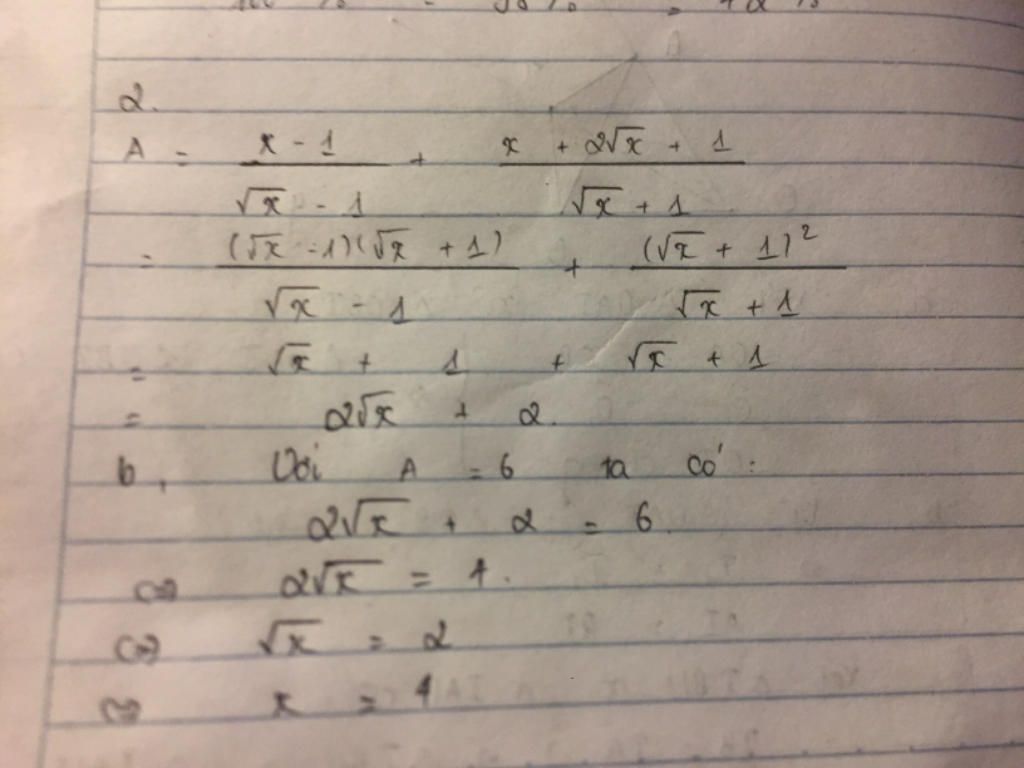 2.
A = \frac{x - 1}{\sqrt{x} - 1} + \frac{x + 2\sqrt{x} + 1}{\sqrt{x} + 1}
= \frac{(\sqrt{x} - 1)(\sqrt{x} + 1)}{\sqrt{x} - 1} + \frac{(\sqrt{x} + 1)^2}{\sqrt{x} + 1}
= \sqrt{x} + 1 + \sqrt{x} + 1
= 2\sqrt{x} + 2.
b, Với A = 6 ta có :
2\sqrt{x} + 2 = 6
⇔ 2\sqrt{x} = 4.
⇔ \sqrt{x} = 2
⇔ x = 4